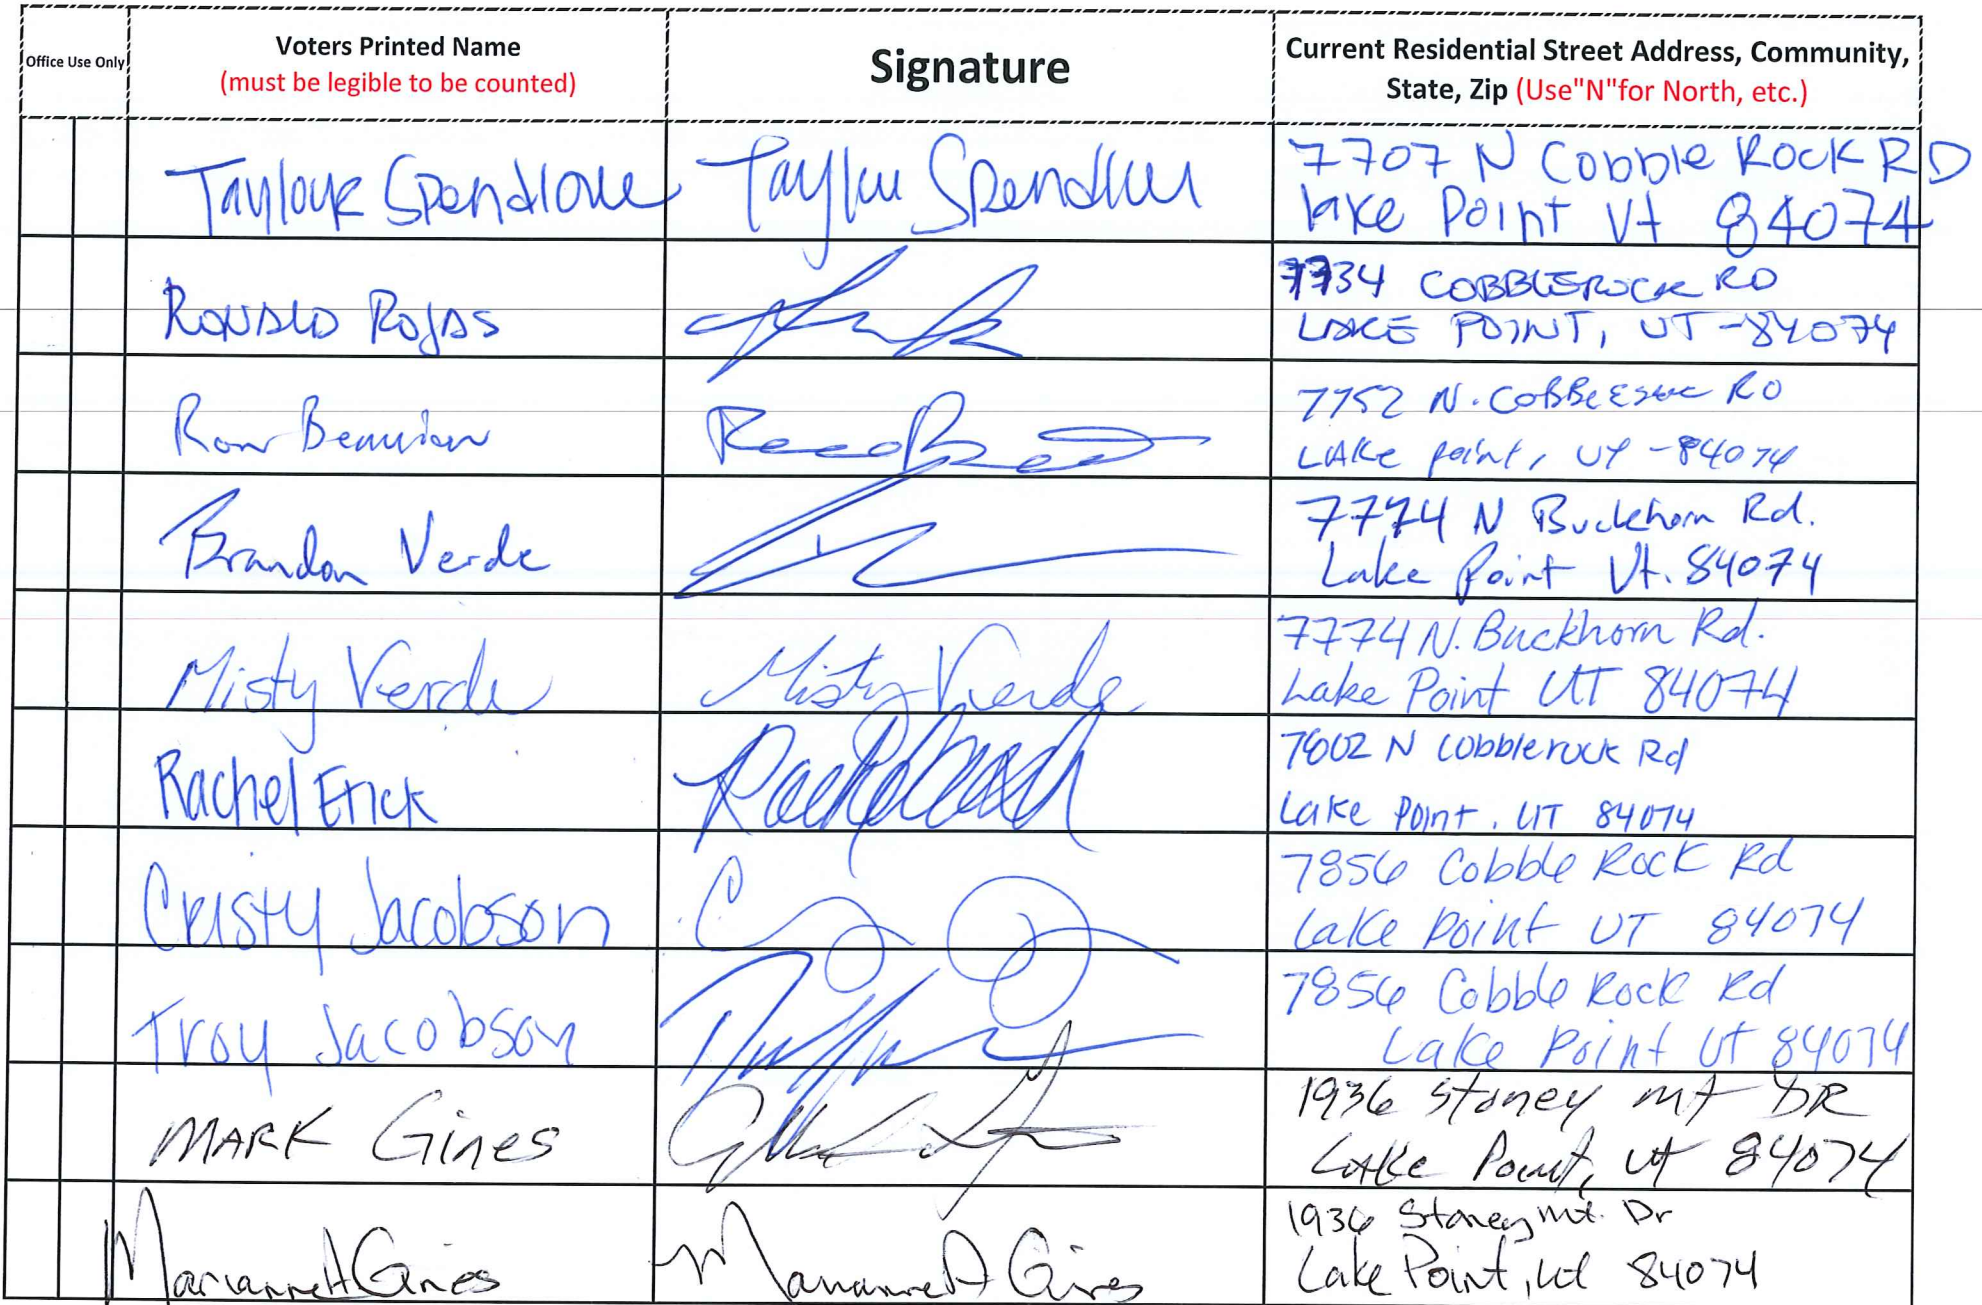 Office Use Only
Voters Printed Name
(must be legible to be counted)
Signature
Current Residential Street Address, Community,
State, Zip (Use"N"for North, etc.)
Taylour Spendlove
7707 N Cobble Rock RD
lake Point Ut 84074
RONALD ROJAS
7734 COBBLEROCK RD
LAKE POINT, UT -84074
Ron
7752 N. RD
LAKe point, UT -84074
Brandon Verde
7774 N Buckhorn Rd.
Lake Point Ut. 84074
Misty Verde
Misty Verde
7774 N. Buckhorn Rd.
Lake Point UT 84074
Rachel Etick
Rachel
7802 N Cobblerock Rd
Lake Point, UT 84074
Cristy Jacobson
7856 Cobble Rock Rd
Lake Point UT 84074
Troy Jacobson
7856 Cobble Rock Rd
Lake Point Ut 84074
MARK Gines
1936 Stoney mt DR
Lake Point, Ut 84074
Marianne A Gines
Marianne A Gines
1936 Stoney mt. Dr
Lake Point, Ut 84074